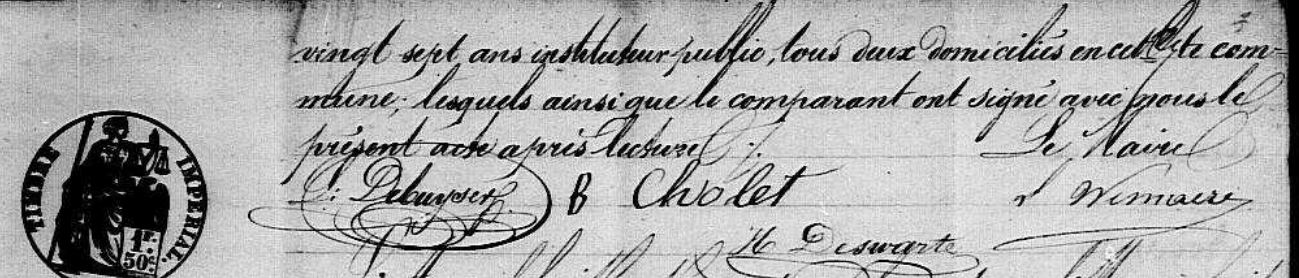 vingt sept ans instituteur public, tous deux domiciliés en cette com-
mune; lesquels ainsi que le comparant ont signé avec nous le
présent acte après lecture ./.
Le Maire
C. Debuyser
B Cholet
Wemaere
H Deswarte
TIMBRE IMPERIAL.
1F.
50c.